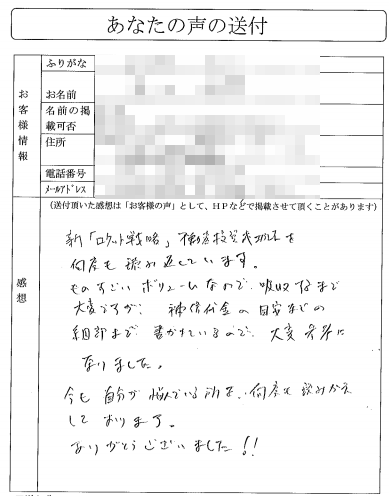 あなたの声の送付
お客様情報
ふりがな
お名前
名前の掲
載可否
住所
電話番号
メールアドレス
(送付頂いた感想は「お客様の声」として、HPなどで掲載させて頂くことがあります)
感想
新「ロケット戦略」不動産投資成功法を
何度も読み返しています。
ものすごいボリュームなので、吸収するまで
大変ですが、補修代金の目安などの
細部まで書かれているので、大変参考に
なりました。
今も自分が悩んでいる所を、何度も読みかえ
しております。
ありがとうございました!!